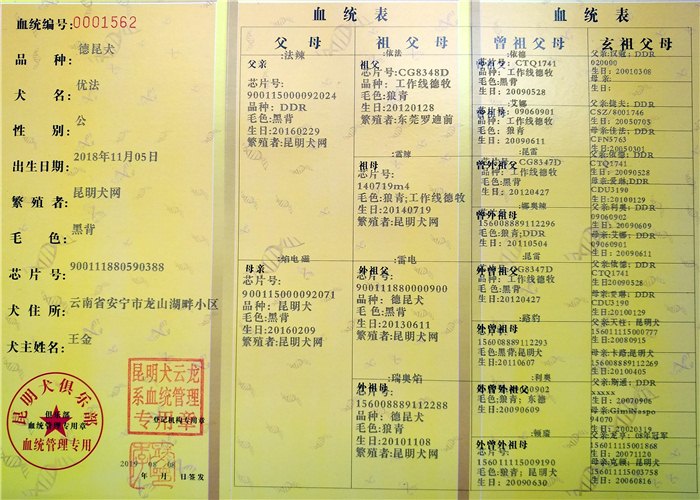 血统编号:0001562
品种: 德昆犬
犬名: 优法
性别: 公
出生日期: 2018年11月05日
繁殖者: 昆明犬网
毛色: 黑背
芯片号: 900111880590388
犬住所: 云南省安宁市龙山湖畔小区
犬主姓名: 王金
昆明犬俱乐部
血统管理专用
俱乐部
血统管理专用章
昆明犬云龙
系血统管理
专用章
登记机构专用章
2019 08 08
年 月 日签发
血统表
父母
祖父母
父亲 :法辣
芯片号:
900115000092024
品种: DDR
毛色:黑背
生日:20160229
繁殖者:昆明犬网
母亲 :焰电.磁
芯片号:
900115000092071
品种: 昆明犬
毛色:黑背
生日:20160209
繁殖者:昆明犬网
祖父 :依法
芯片号:CG8348D
品种:工作线德牧
毛色:狼青
生日:20120128
繁殖者:东莞罗迪前
祖母 :雷辣
芯片号:
140719m4
毛色:狼青;工作线德牧
生日:20140719
繁殖者:昆明犬网
外祖父 :雷电
芯片号:
900111880000900
品种: 德昆犬
毛色:黑背
生日:20130611
繁殖者:昆明犬网
外祖母 :瑞奥焰
芯片号:
156008889112288
品种: 德昆犬
毛色:黑背
生日:20101108
繁殖者:昆明犬网
血统表
曾祖父母
玄祖父母
曾祖父 :依德
芯片号: CTQ1741
品种:工作线德牧
毛色:黑背
生日: 20090528
曾祖母 :艾娜
芯片号: 09060901
品种:工作线德牧
毛色: 狼青
生日: 20090611
曾外祖父 :昆雷
芯片号: CG8347D
品种:工作线德牧
毛色:黑背
生日: 20120427
曾外祖母 :娜奥辣
156008889112296
毛色:狼青;DDR
生日: 20110504
外曾祖父 :昆雷
芯片号: CG8347D
品种:工作线德牧
毛色:黑背
生日:20120427
外曾祖母 :路豹
156008889112293
毛色:黑背;昆明犬
生日:20110607
外曾外祖父 :利奥
毛色:狼青; 东德
生日: 20090609
外曾外祖母 :顿瑞
芯片号:
156011115009190
毛色:狼青; 昆明犬
生日: 20090630
父亲:汉寇; DDR
020000
生日: 20010308
母亲:
生日:
DDR
CSZ/8001746
生日: 20050703
母亲:佳法; DDR
CFN5763
生日:20050301
父亲:依德; DDR
CTQ1741
生日: 20090528
母亲:爱琳;DDR
CDU3190
生日: 20100129
父亲:利奥; DDR
09060902
生日: 20090609
母亲:艾娜; DDR
09060901
生日: 20090611
父亲:依德; DDR
CTQ1741
生日: 20090528
母亲:爱琳; DDR
CDU3190
生日: 20100129
父亲:天柱; 昆明犬
156008889900154
生日: 20071109
母亲:卡路;昆明犬
生日: 20100405
父亲:斯通; DDR
xxxxx
生日: 20021206
母亲:GimiNaspo
94070
生日: 20020319
父亲:龙亨; 08年冠军
156011115001500
生日: 20071120
母亲:克顿; 昆明犬
156011115003758
生日: 20060816